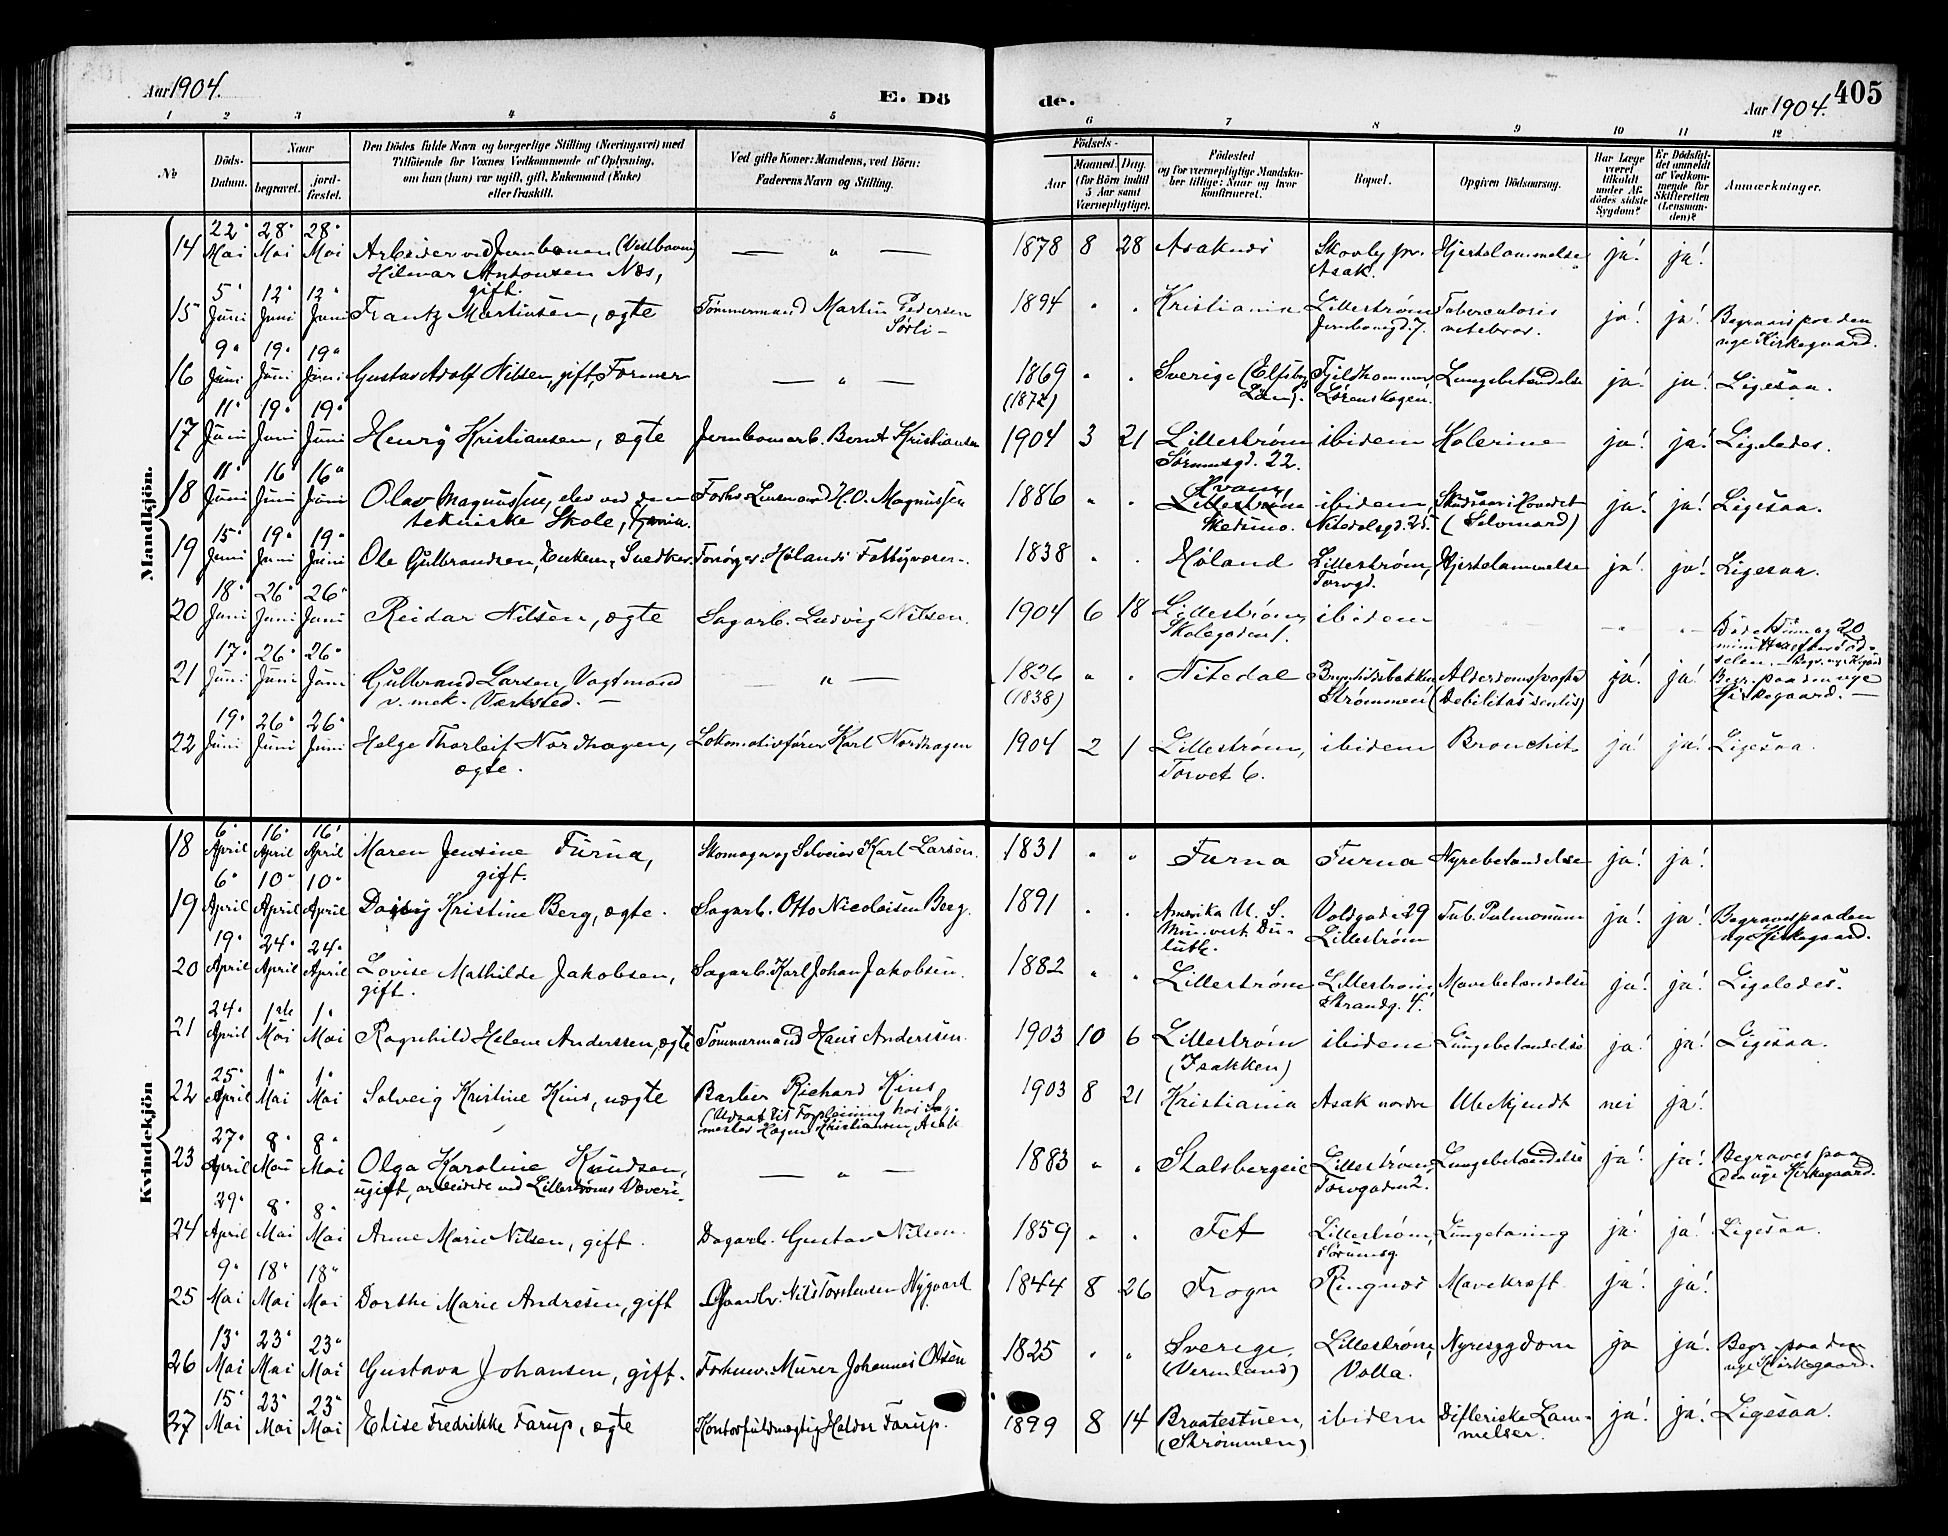 Aar 1904.
E. Dö
de.
Aar 1904.
405
1 2 3 4 5 6 7 8 9 10 11 12
No
Döds-Datum.
Naar
begravet.
jordfæstet.
Den Dödes fulde Navn og borgerlige Stilling (Næringsvei) med
Tilföiende for Voxnes Vedkommende af Oplysning,
om han (hun) var ugift, gift, Enkemand (Enke)
eller fraskilt.
Ved gifte Koner: Mandens, ved Börn:
Faderens Navn og Stilling.
Födsels-
Aar
Maaned.
Dag.
(for Börn indtil
5 Aar samt
Værnepligtige).
Födested
og for værnepligtige Mandskaber tillige: Naar og hvor
konfirmeret.
Bopæl.
Opgiven Dödsaarsag.
Har Læge
været
tilkaldt
under Afdödes sidste
Sygdom?
Er Dödsfaldet anmeldt
af Vedkommende for
Skifteretten
(Lensmanden)?
Anmærkninger.
Mandkjön.
14 22' Mai 28' Mai 28' Mai Arbeider ved Jernbanen (Vestbanen) — " — 1878 8 28 Asaknæs Skovly pr. Hjertelammelse ja! ja!
Hilmar Antonsen Næs, Asak.
gift.
15 5' Juni 12' Juni 12' Juni Frantz Martinsen, ægte Tømmermand Martin Pedersen 1894 " " Kristiania Lillestrøm Tuberculosis ja! ja! Begravis paa den
Sörli- Jernbanegd. 7. vetebror. nye Kirkegaard.
16 9' Juni 19' Juni 19' Juni Gustav Adolf Nilsen, gift, Former — " — 1869 " " Sverige (Elfsborg Fjeldhammer, Lungebetændelse ja! ja! Ligesaa.
(1872) Län). Lørenskogen.
17 11' Juni 19' Juni 19' Juni Henry Kristiansen, ægte Jernbanearb. Bernt Kristiansen 1904 3 21 Lillestrøm ibidem Kolerine ja! ja! Ligeledes.
Sørumsgd. 22.
18 11' Juni 16 Juni 16' Juni Olav Magnussen, elev ved den Forhv. Lensmand H.O. Magnussen 1886 " " Lillestrøm ibidem, Skudsaar i Hovedet ja! ja! Ligesaa.
tekniske Skole, Kr.ania. Skedsmo. Nitedalsgd. 25. (Selvmord)
19 15' Juni 19' Juni 19' Juni Ole Gulbrandsen, Enkem., Snedker. Forsørger: Hølands Fattigvæsen. 1838 " " Høland Lillestrøm, Hjertelammelse ja! ja! Ligesaa.
Torvgd.
20 18' Juni 26' Juni 26' Juni Reidar Nilsen, ægte Sagarb. Ludvig Nilsen. 1904 6 18 Lillestrøm, ibidem — —
Skolegaden 1.
21 17' Juni 26' Juni 26' Juni Gulbrand Larsen, Vagtmand — " — 1826 " " Nitedal Brynhildsbakken Alderdomssvaghed ja! ja! Begr. paa den nye
v. mek. Værksted. — (1838) Strømmen (Debilitas senilis) Kirkegaard. —
22 19' Juni 26' Juni 26' Juni Helge Thorleif Nordhagen, Lokomotivfører Karl Nordhagen 1904 2 1 Lillestrøm, ibidem Bronchit. ja! ja! Ligesaa.
ægte. Torvet 6.
Kvindekjön
18 6' April 16' April 16' April Maren Jensine Furua, Skomager og Selveier Karl Larsen. 1831 " " Furua Furua Nyrebetændelse ja! ja!
gift.
19 6' April 10' April 10' April Daisy Kristine Berg, ægte. Sagarb. Otto Nicolaisen Berg. 1891 " " Amerika U. S. Voldgade 29 Tub. Pulmonum ja! ja! Begraves paa den
Lillestrøm nye Kirkegaard.
20 19' April 24' April 24' April Lovise Mathilde Jakobsen, Sagarb. Karl Johan Jakobsen. 1882 " " Lillestrøm Lillestrøm, Mavebetændelse ja! ja! Ligeledes.
gift. Strandg. 4.
21 24' April 1ste Mai 1' Mai Ragnhild Helene Anderssen, ægte Tømmermand Hans Anderssen. 1903 10 6 Lillestrøm ibidem Lungebetændelse ja! ja! Ligesaa.
(Isakken)
22 25' April 1' Mai 1' Mai Solveig Kristine Kins, uægte Barber Richard Kins 1903 8 21 Kristiania Asak nordre Ubekjendt nei ja!
(Udsat til Forpleining hos Sagmester Hagen Kristiansen, Asak
23 27' April 8' Mai 8' Mai Olga Karoline Knudsen, — " — 1883 " " Stalsbergeie Lillestrøm, Lungebetændelse ja! ja! Begraves paa
ugift, arbeidede ved Lillestrøms Væveri. Torvgaden 2. den nye Kirkegaard.
24 29' April 8' Mai 8' Mai Anne Marie Nilsen, gift. Dagarb. Gustav Nilsen. 1859 " " Fet Lillestrøm, Lungetæring ja! ja! Ligesaa.
Sørumsg.
25 9' Mai 18' Mai 18' Mai Dorthe Marie Andresen, gift Gaardbr. Nils Torstensen Nygaard 1844 8 26 Frogn Ringnæs Mavekræft. ja! ja!
26 13' Mai 23' Mai 23' Mai Gustava Johansen, gift. Forhenv. Murer Johannes Olsen 1825 " " Sverige, Lillestrøm, Nyresygdom ja ja! Begr. paa den
(Vermland) Volla. nye Kirkegaard.
27 15' Mai 23' Mai 23' Mai Elise Fredrikke Farup, ægte Kontorfuldmægtig Haldor Farup. 1899 8 14 Braatestuen, ibidem Difteriske Lam- ja! ja! Ligesaa.
(Strømmen) melser.